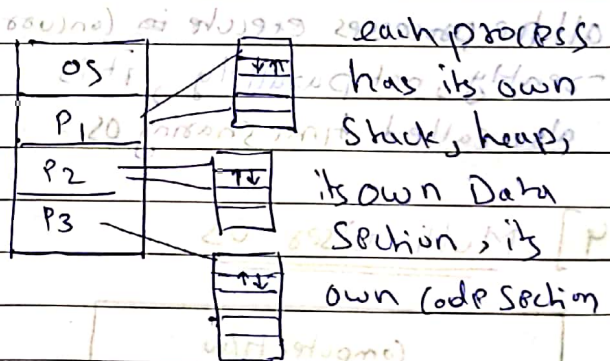 OS
P1
P2
P3
each process
has its own
Stack, heap,
its own Data
Section, its
own Code Section